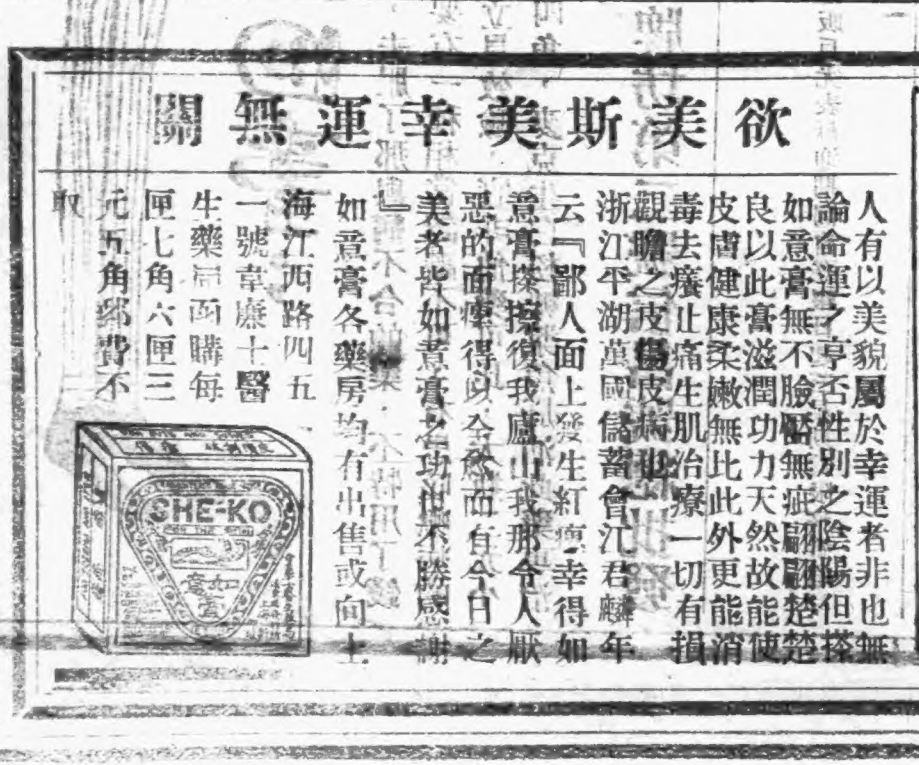 欲美斯美幸運無關
人有以美貌屬於幸運者非也無
論命運之亨否性別之陰陽但搽
如意膏無不臉靨無疵翩翩楚楚
良以此膏滋潤功力天然故能使
皮膚健康柔嫩無比此外更能消
毒去癢止痛生肌治療一切有損
觀瞻之皮傷皮病也
浙江平湖萬國儲蓄會江君麟年
云『鄙人面上發生紅瘰幸得如
意膏搽擦復我廬山我那令人厭
惡的面瘰得以全愈而有今日之
美者皆如意膏之功也不勝感謝
』
如意膏各藥房均有出售或向上
海江西路四五
一號韋廉士醫
生藥局函購每
匣七角六匣三
元五角郵費不
取
SHE-KO
如意膏